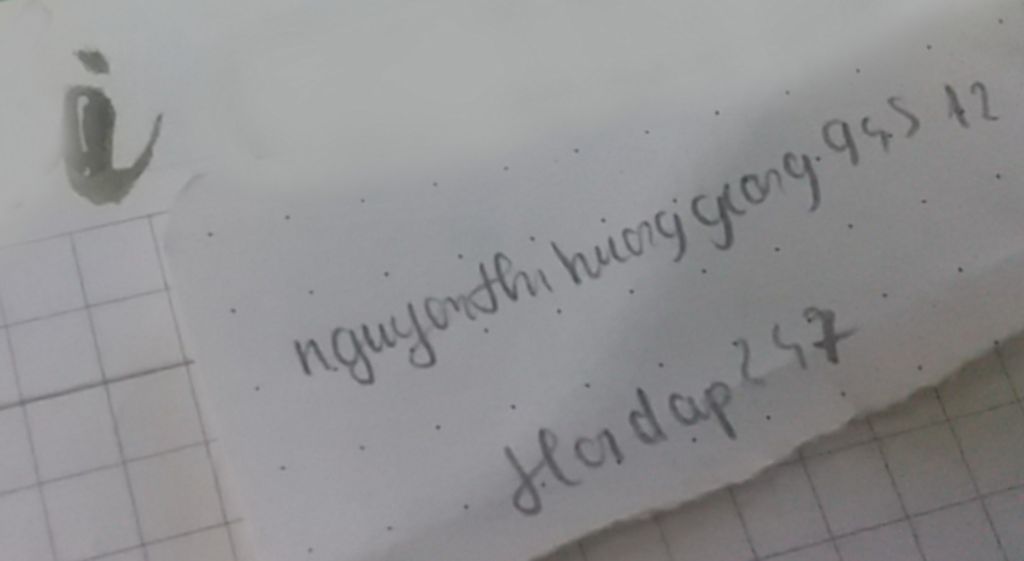 i
nguyenthihuonggiang.945 12
Hoidap247